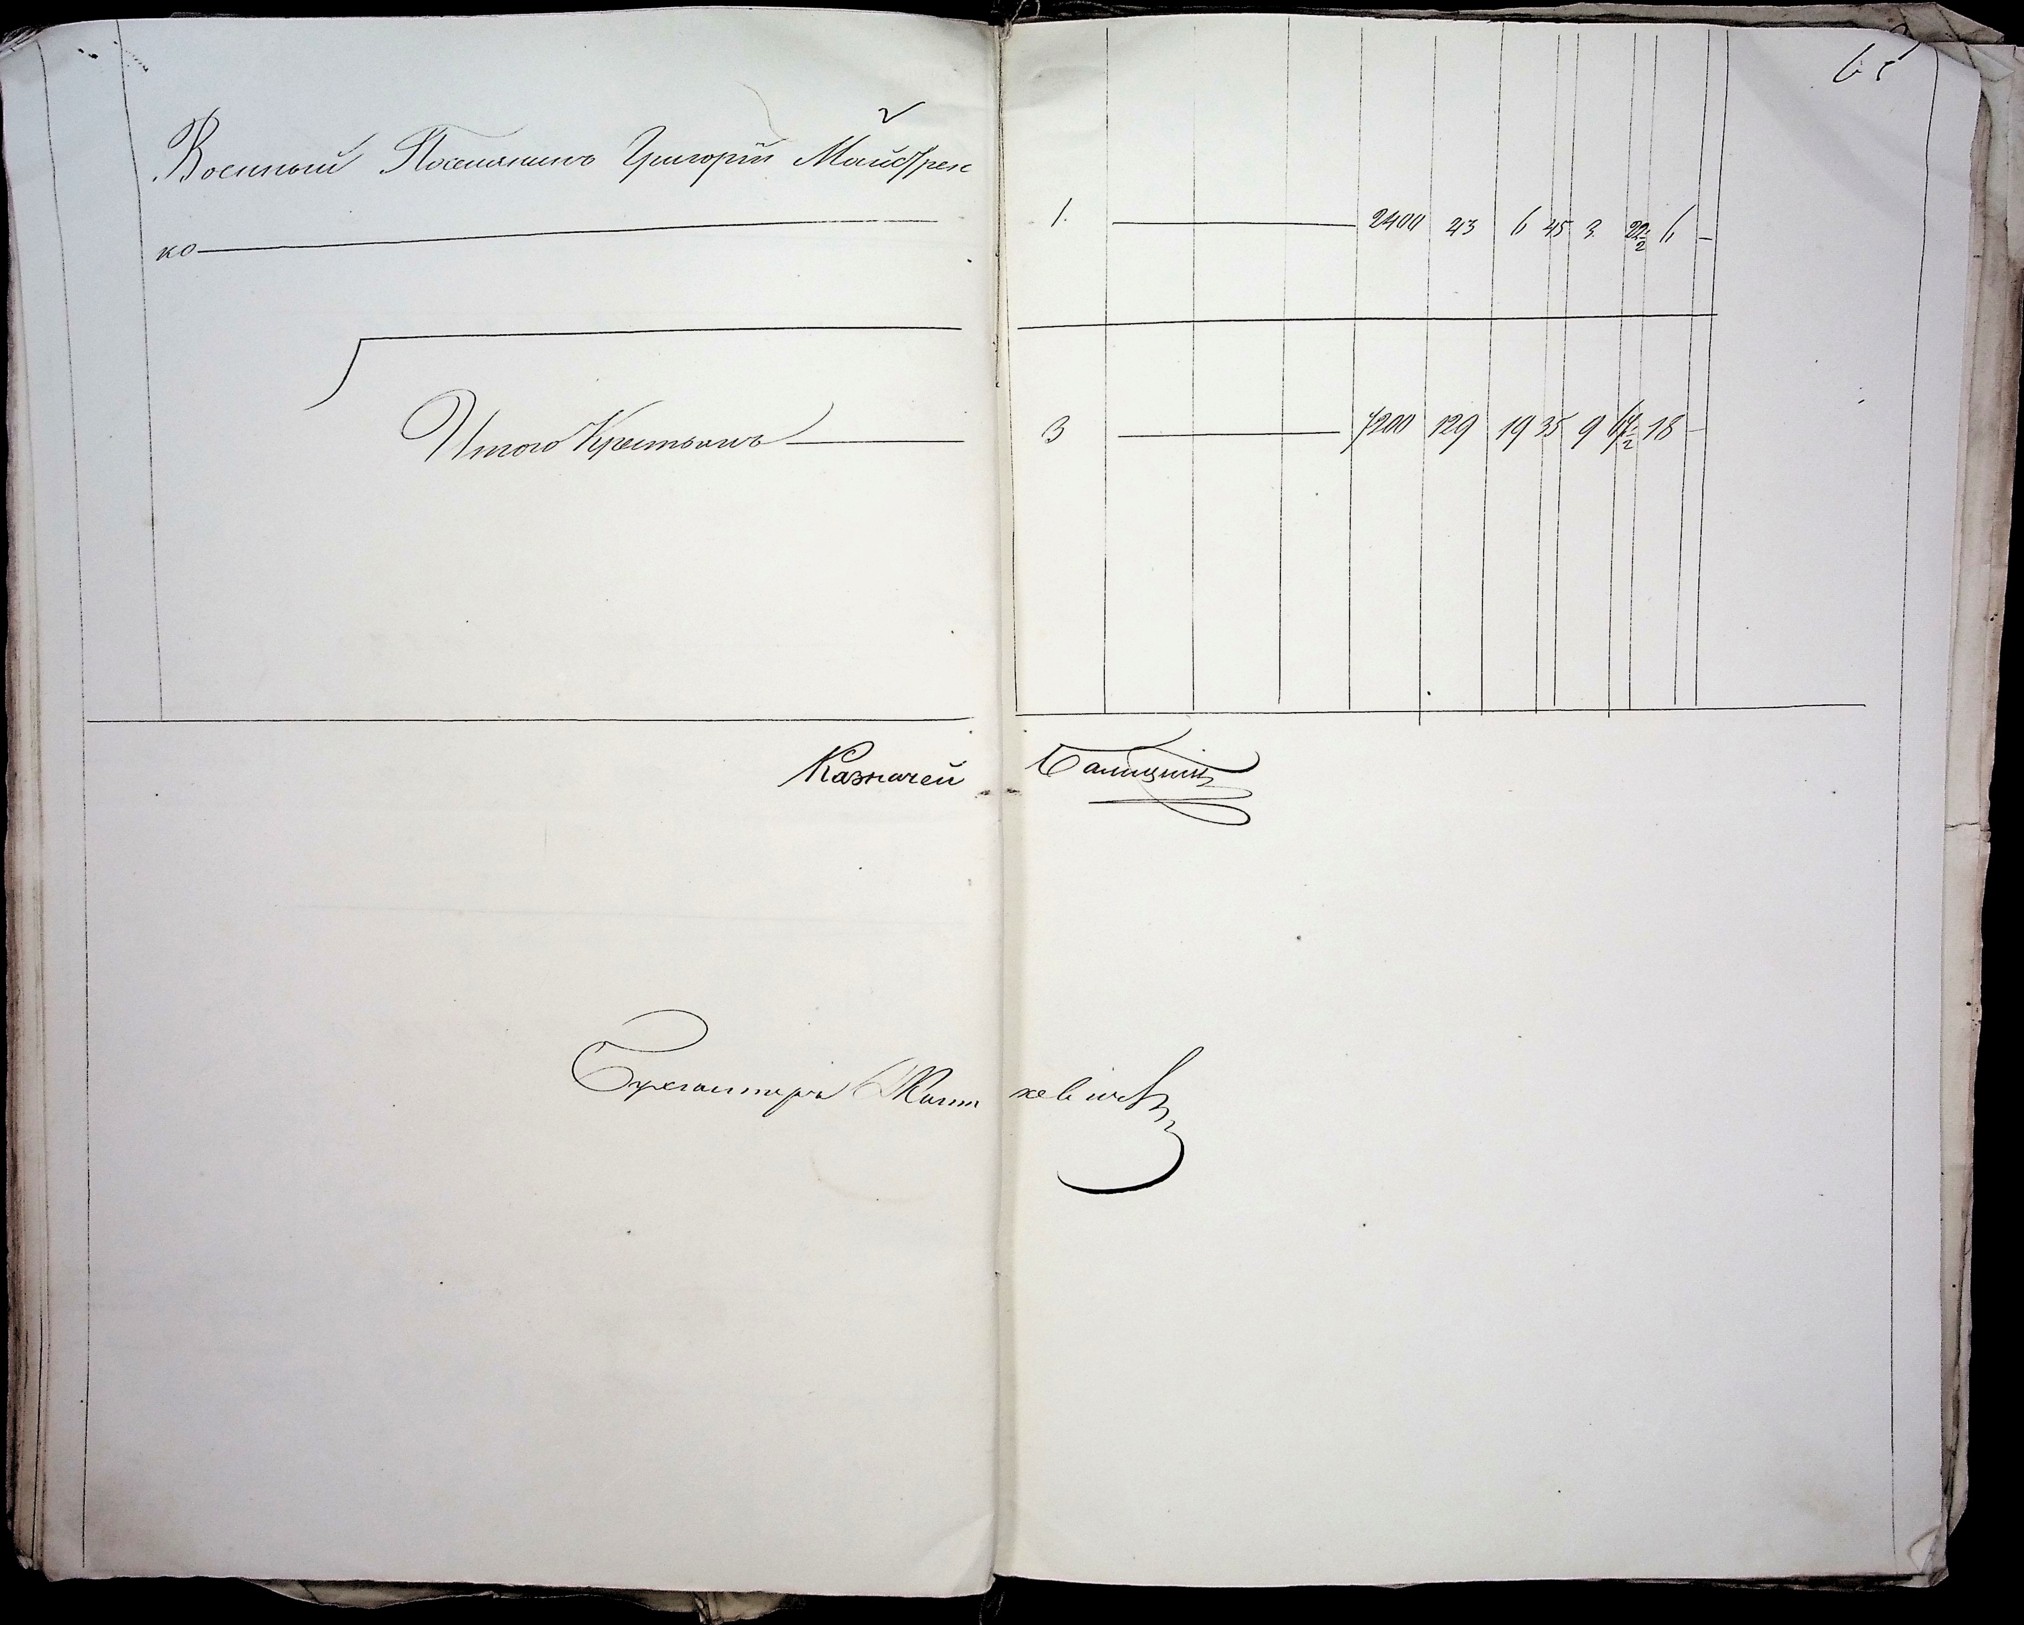 65
Военный Поселянинъ Григорій Майстрен
ко 1. 2400 43 6 45 3 22½ 6 –
Итого Крестьянъ 3 7200 129 19 35 9 67½ 18 –
Казначей
Бухгалтеръ